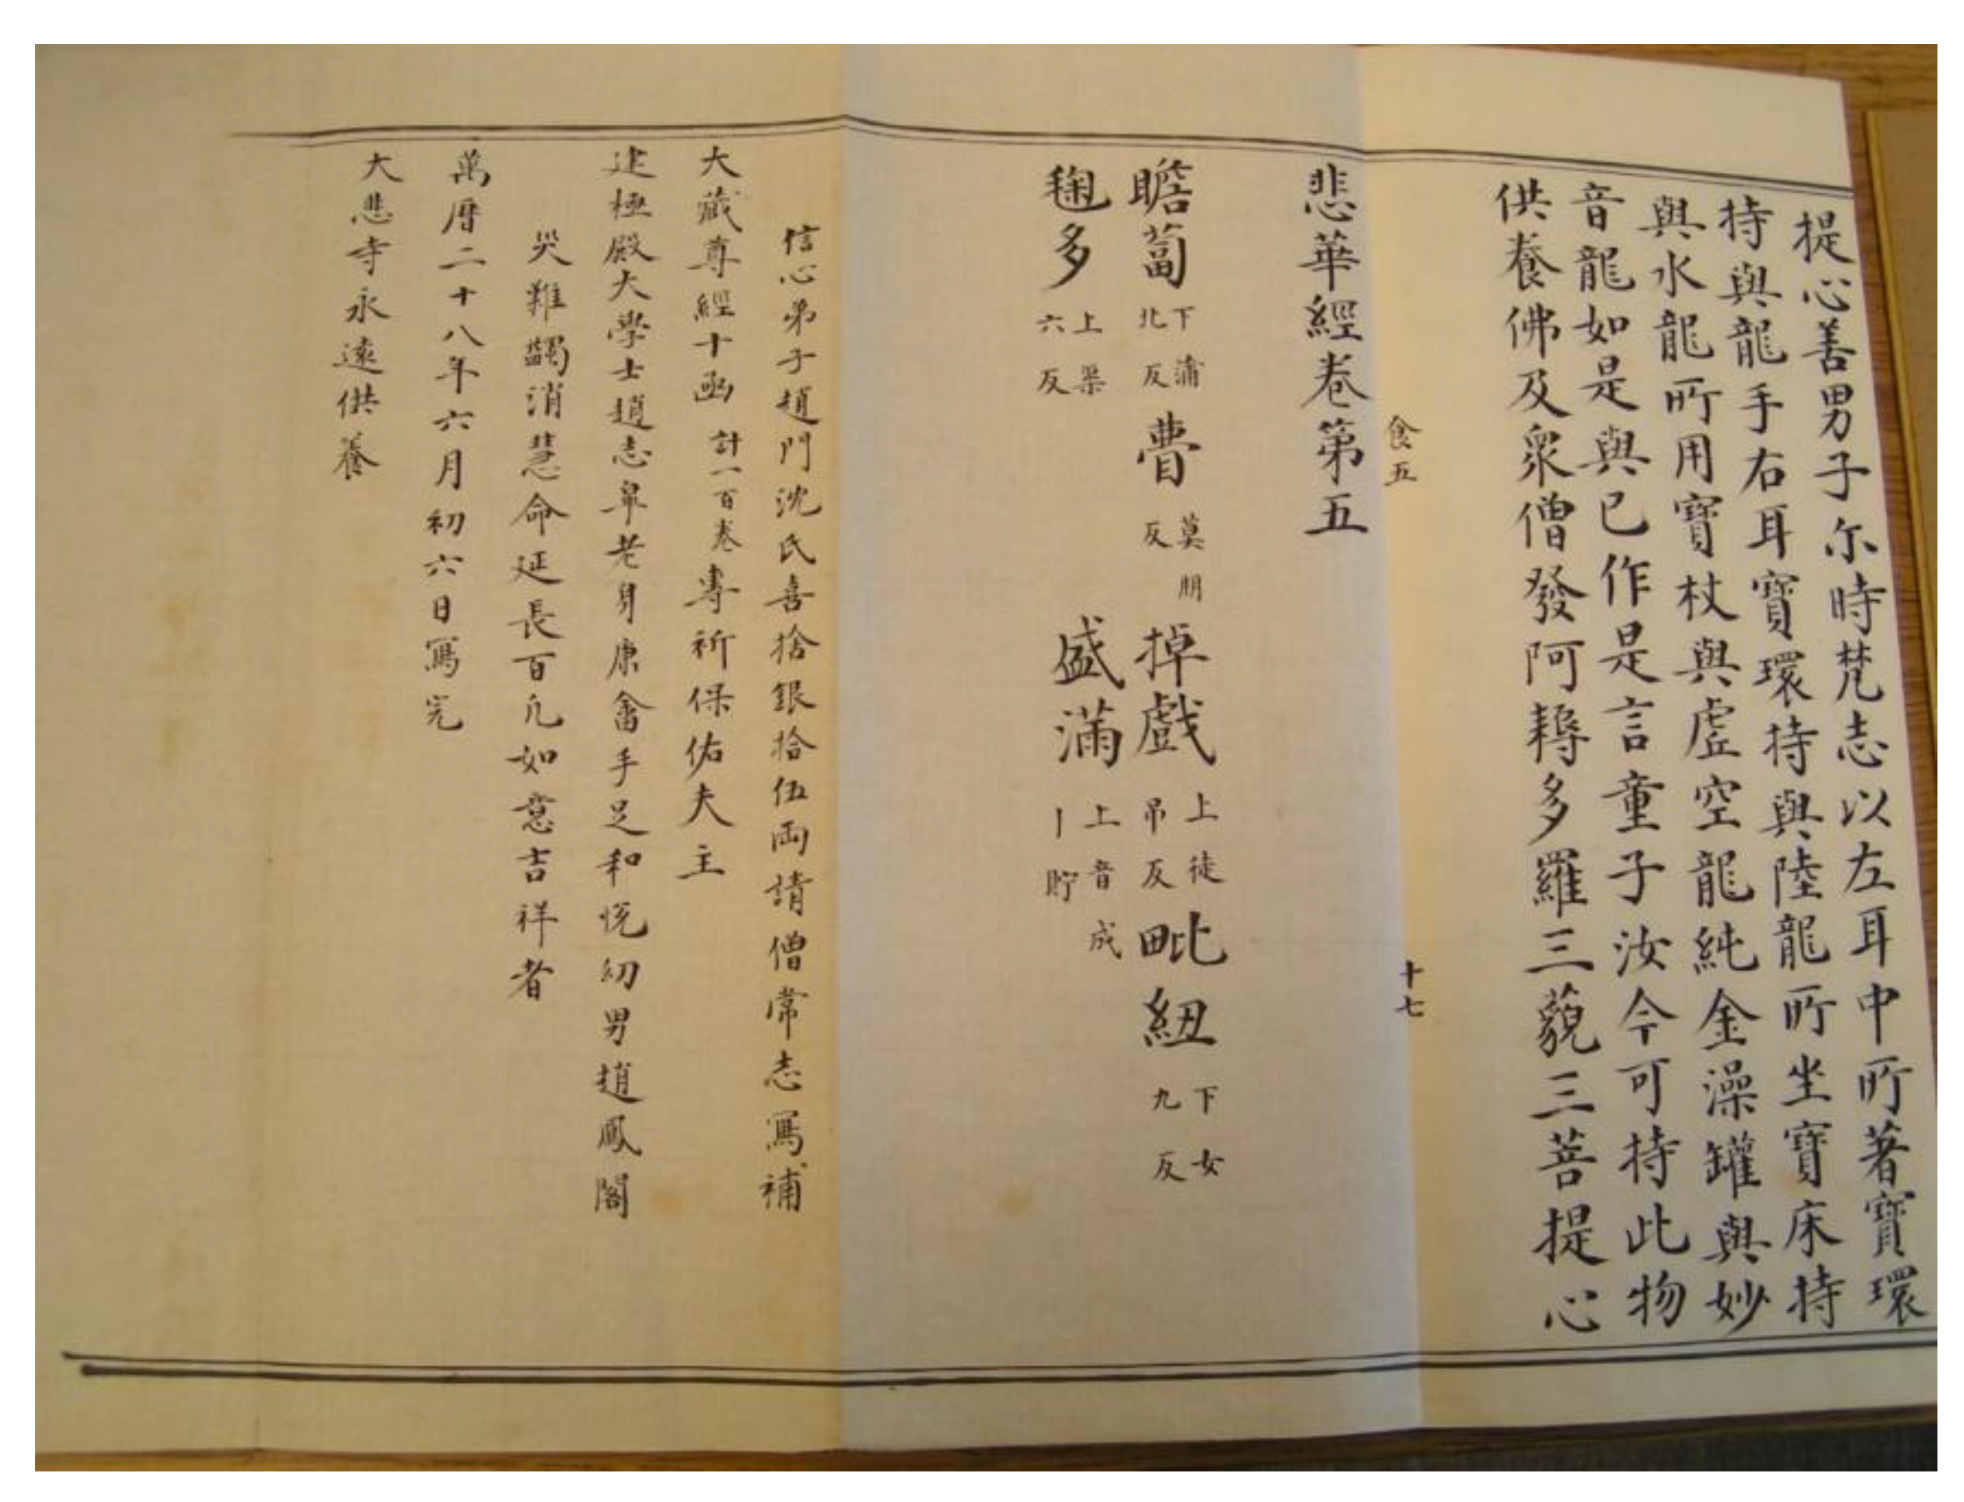 提心善男子尓時梵志以左耳中所著寶環
持與龍手右耳寶環持與陸龍所坐寶床持
與水龍所用寶杖與虛空龍純金澡罐與妙
音龍如是與已作是言童子汝今可持此物
供養佛及衆僧發阿耨多羅三藐三菩提心
食五
十七
悲華經卷第五
瞻蔔下蒲北反 瞢莫朋反 掉戲上徒吊反 毗紐下女九反
毱多上渠六反 盛滿上音成丨貯
信心弟子趙門沈氏喜捨銀拾伍兩請僧常志寫補
大藏尊經十函計一百卷專祈保佑夫主
建極殿大學士趙志皐老身康畬手足和悅幼男趙鳳閣
災難蠲消慧命延長百凡如意吉祥者
萬曆二十八年六月初六日寫完
大悲寺永遠供養